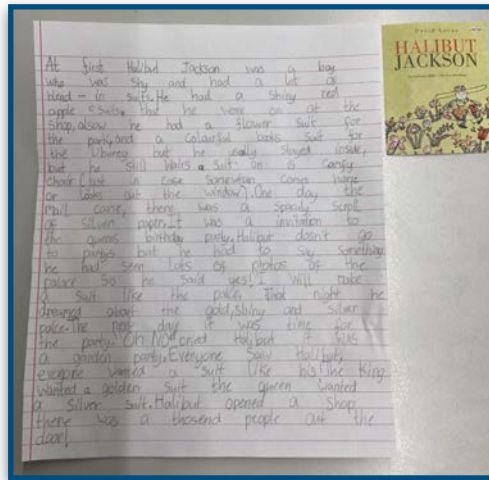 At first Halibut Jackson was a boy
who was shy and had a lot of
blend-in suits. He had a shiny red
apple suits that he wore on at the
shop, alsow he had a flower suit for
the party, and a colourful books suit for
the liburey but he really stayed inside,
but he still wairs a suit on is comfy
chair (Just in case somewon coms home
or looks out the window). One day the
mail came, there was a sparkly scroll
of silver paper. It was a invitation to
the queens birthday party. Halibut dosn't go
to partys but he had to say something.
he had seen lots of photos of the
palace so he said yes! I will make
a suit like the palce. That night he
dreamed about the gold, shiny and silver
palce. The next day it was time for
the party. "Oh NO" cried Halibut it was
a garden party. Everyone saw Halibut,
everyone wanted a suit like his! the King
wanted a golden suit the queen wanted
a silver suit. Halibut opened a shop
there was a thosend people out the
door!
David Lucas
HALIBUT
JACKSON